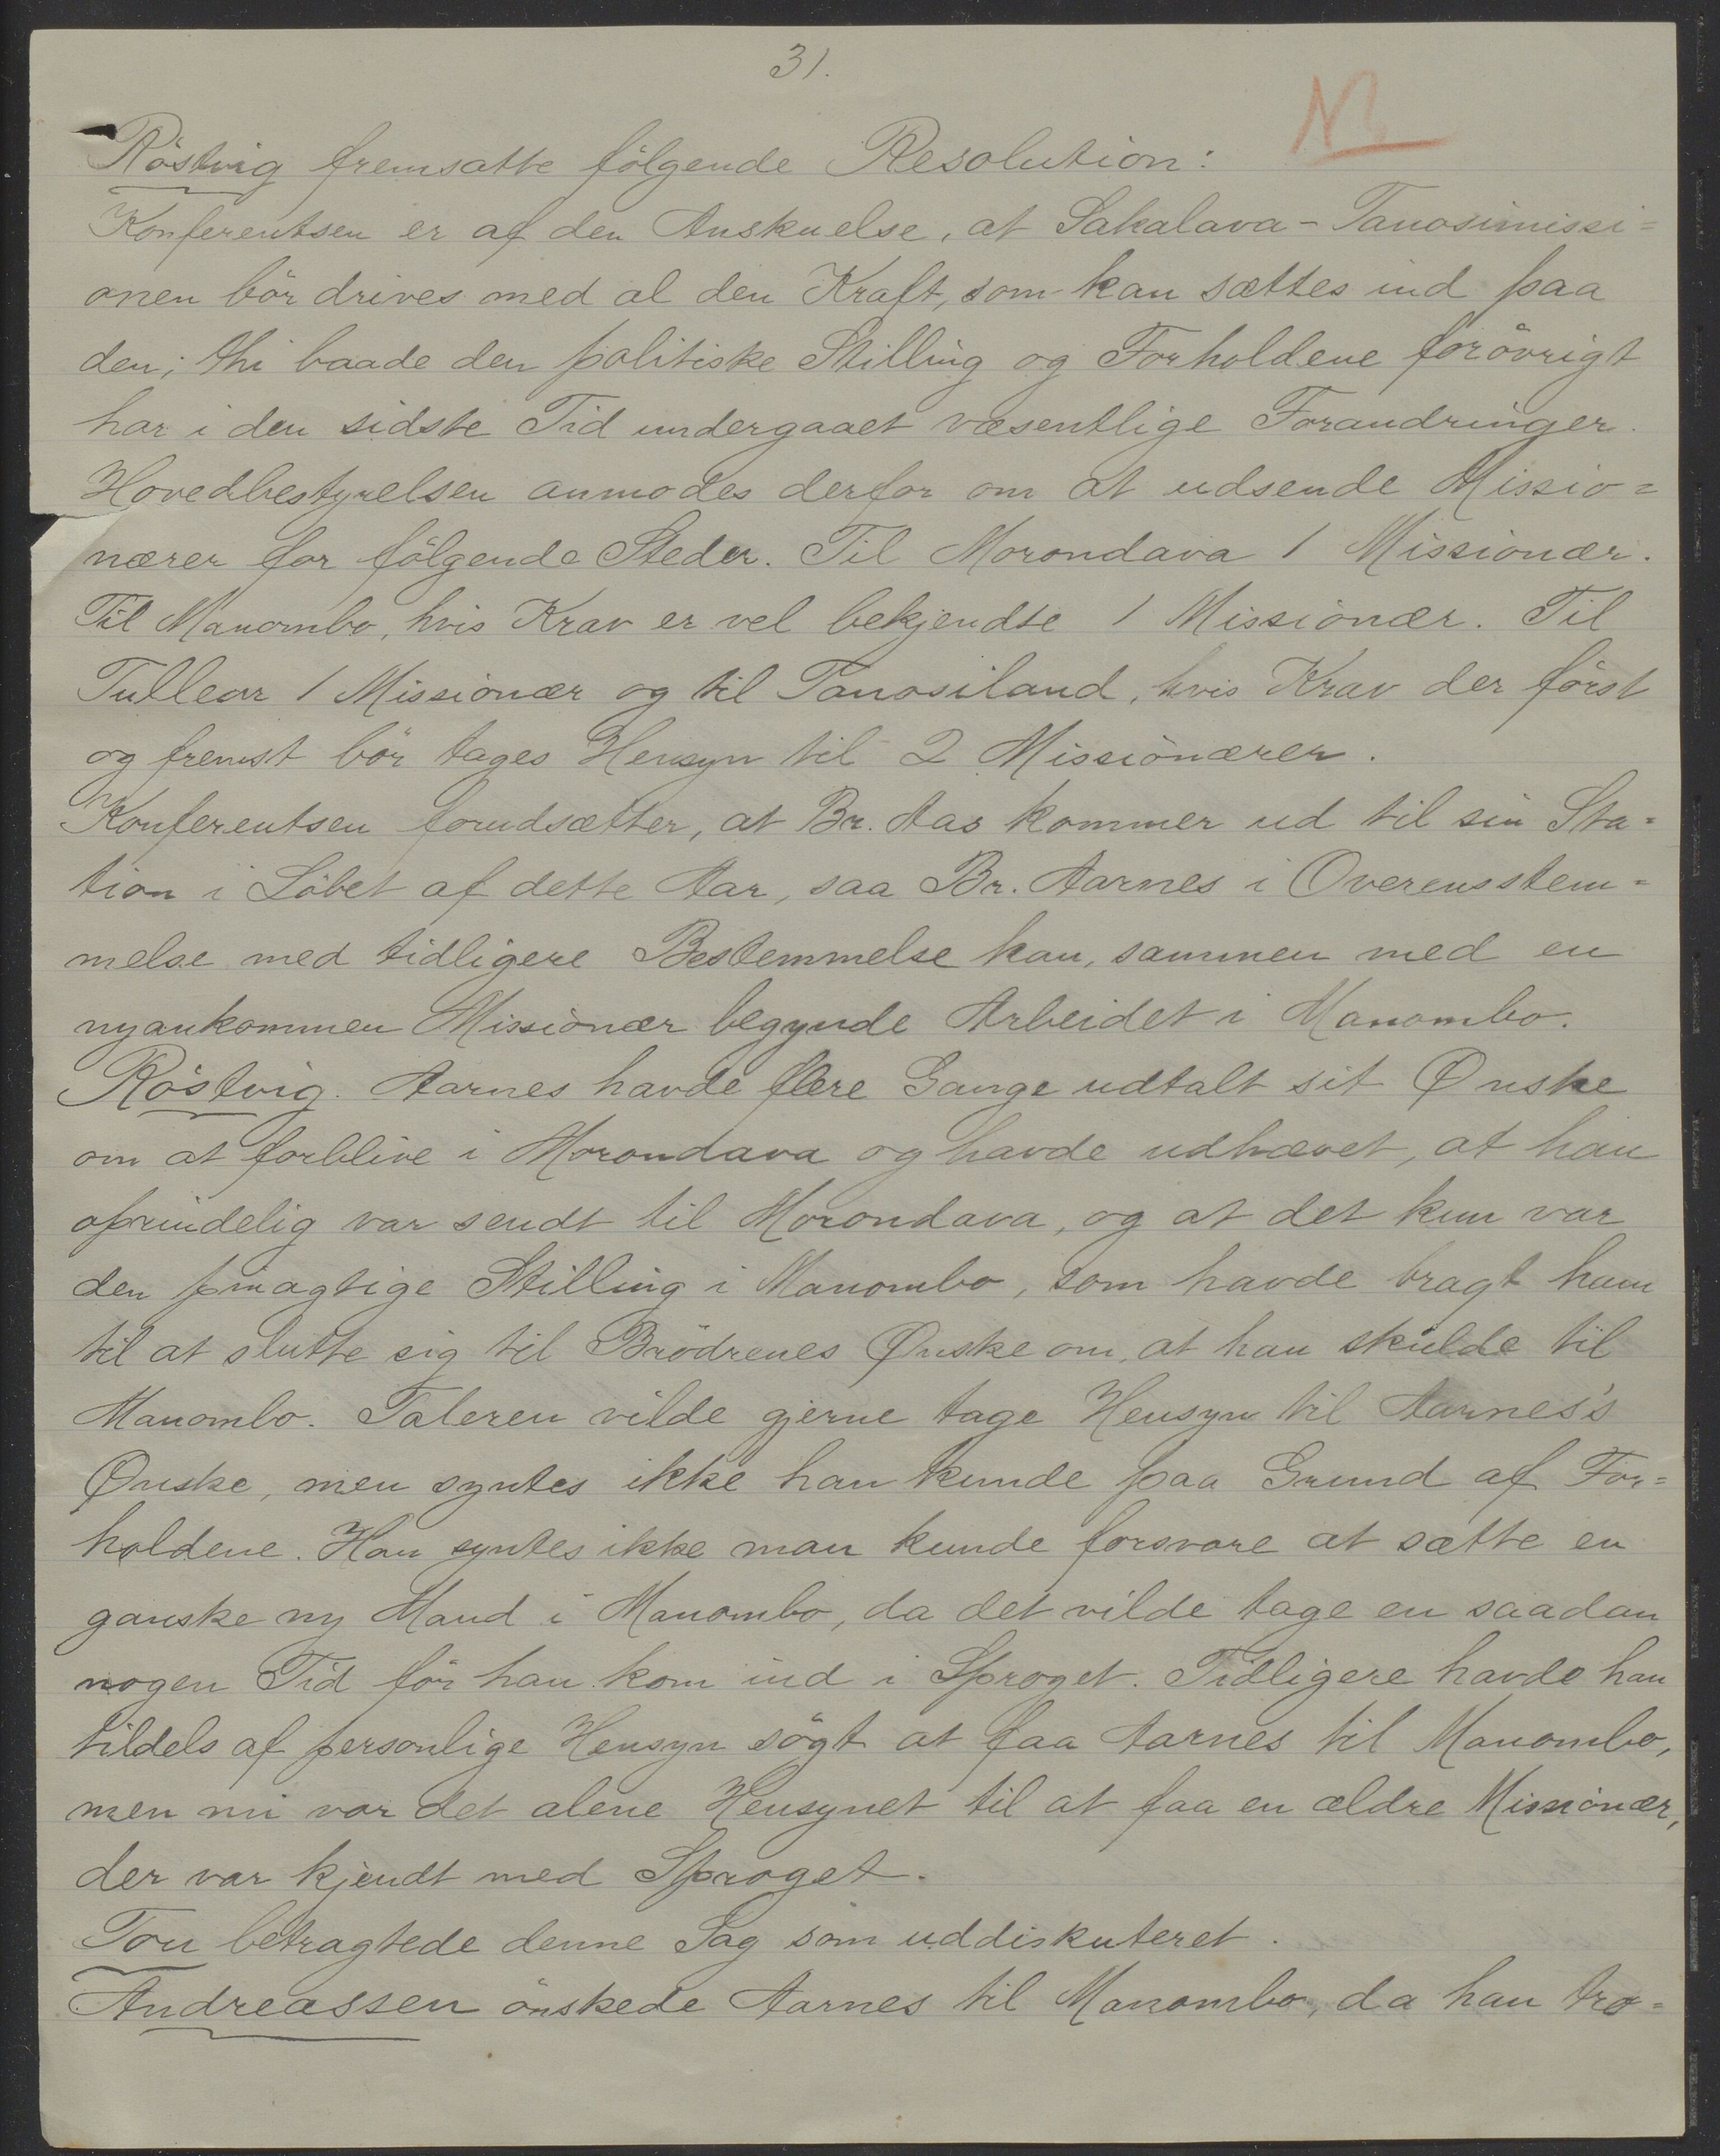 31.
NB
Röstvig fremsatte fölgende Resolution:
Konferentsen er af den Anskuelse, at Sakalava-Tanosimissi=
onen bör drives med al den Kraft, som kan sættes ind paa
den; thi baade den politiske Stilling og Forholdene forövrigt
har i den sidste Tid undergaaet væsentlige Forandringer.
Hovedbestyrelsen anmodes derfor om at udsende Missio=
nærer for fölgende Steder. Til Morondava 1 Missionær.
Til Manombo, hvis Krav er vel bekjendte 1 Missionær. Til
Tullear 1 Missionær og til Tanosiland, hvis Krav der först
og fremst bör tages Hensyn til 2 Missionærer.
Konferentsen forudsætter, at Br. Aas kommer ud til sin Sta=
tion i Löbet af dette Aar, saa Br. Aarnes i Overensstem=
melse med tidligere Bestemmelse kan, sammen med en
nyankommen Missionær begynde Arbeidet i Manombo.
Röstvig. Aarnes havde flere Gange udtalt sit Ønske
om at forblive i Morondava og havde udhævet, at han
oprindelig var sendt til Morondava, og at det kun var
den prægtige Stilling i Manombo, som havde bragt ham
til at slutte sig til Brödrenes Ønske om, at han skulde til
Manombo. Taleren vilde gjerne tage Hensyn til Aarnes's
Ønske, men syntes ikke han kunde paa Grund af For=
holdene. Han syntes ikke man kunde forsvare at sætte en
ganske ny Mand i Manombo, da det vilde tage en saadan
nogen Tid för han kom ind i Sproget. Tidligere havde han
tildels af personlige Hensyn sögt at faa Aarnes til Manombo,
men nu var det alene Hensynet til at faa en ældre Missionær,
der var kjendt med Sproget.
Tou betragtede denne Sag som uddiskuteret.
Andreassen önskede Aarnes til Manombo, da han tro=